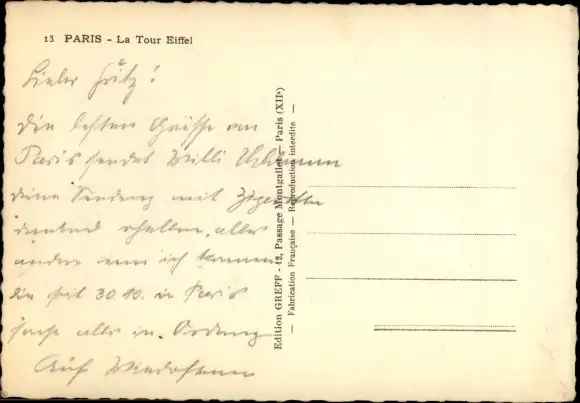 13 PARIS - La Tour Eiffel
Lieber Fritz!
Die besten Grüße aus
Paris sendet Willi
deine Sendung mit Zigaretten
dankend erhalten, alles
andere wenn ich komme.
bin seit 30.10. in Paris
sonst alles in Ordnung
Auf Wiedersehen
Edition GREFF - 42, Passage Montgallet - Paris (XIIe)
— Fabrication Française — Reproduction interdite —